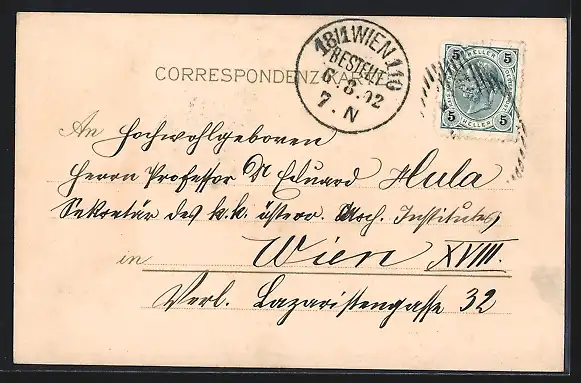 CORRESPONDENZ-KARTE
18/1 WIEN 110
BESTELLT
6.8.02
7. N
5 HELLER 5
5 HELLER 5
An Hochwohlgeboren
Herrn Professor Dr Eduard Hula
Sekretär des k. k. österr. Arch. Institutes
in Wien XVIII.
Verl. Lazaristengasse 32